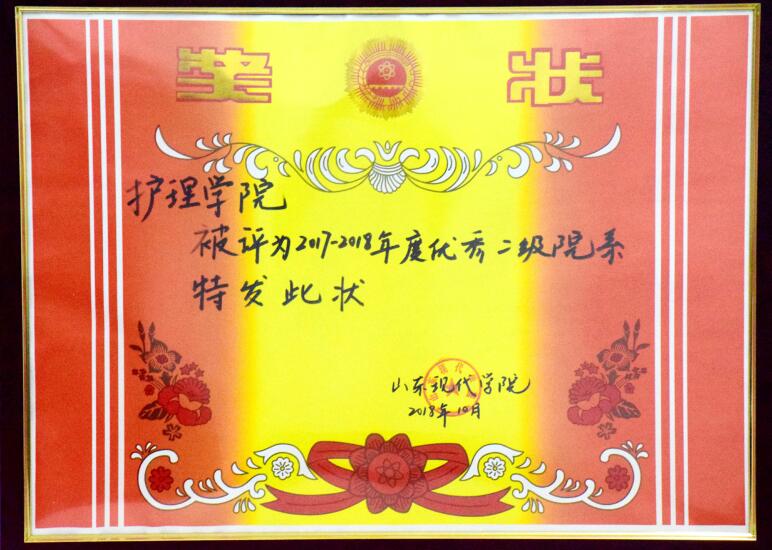 奖状
护理学院
被评为2017-2018年度优秀二级院系
特发此状
山东现代学院
2018年10月